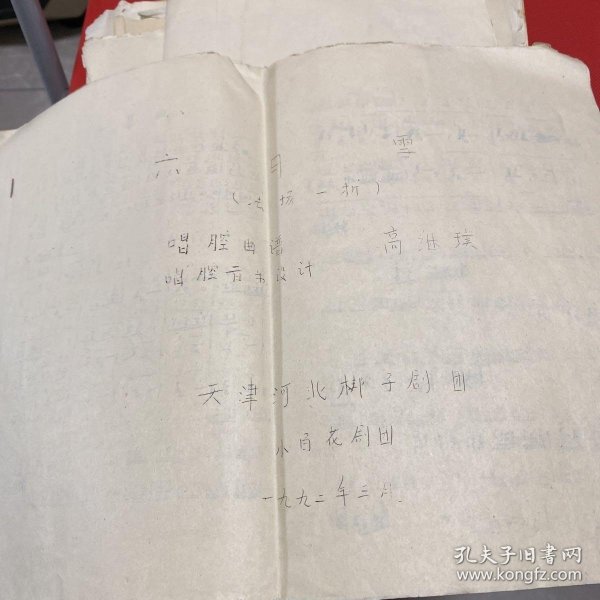 六月雪
（法场一折）
唱腔曲谱 高继璞
唱腔音乐设计
天津河北梆子剧团
小百花剧团
一九九二年三月
孔夫子旧书网
www.kongfz.com